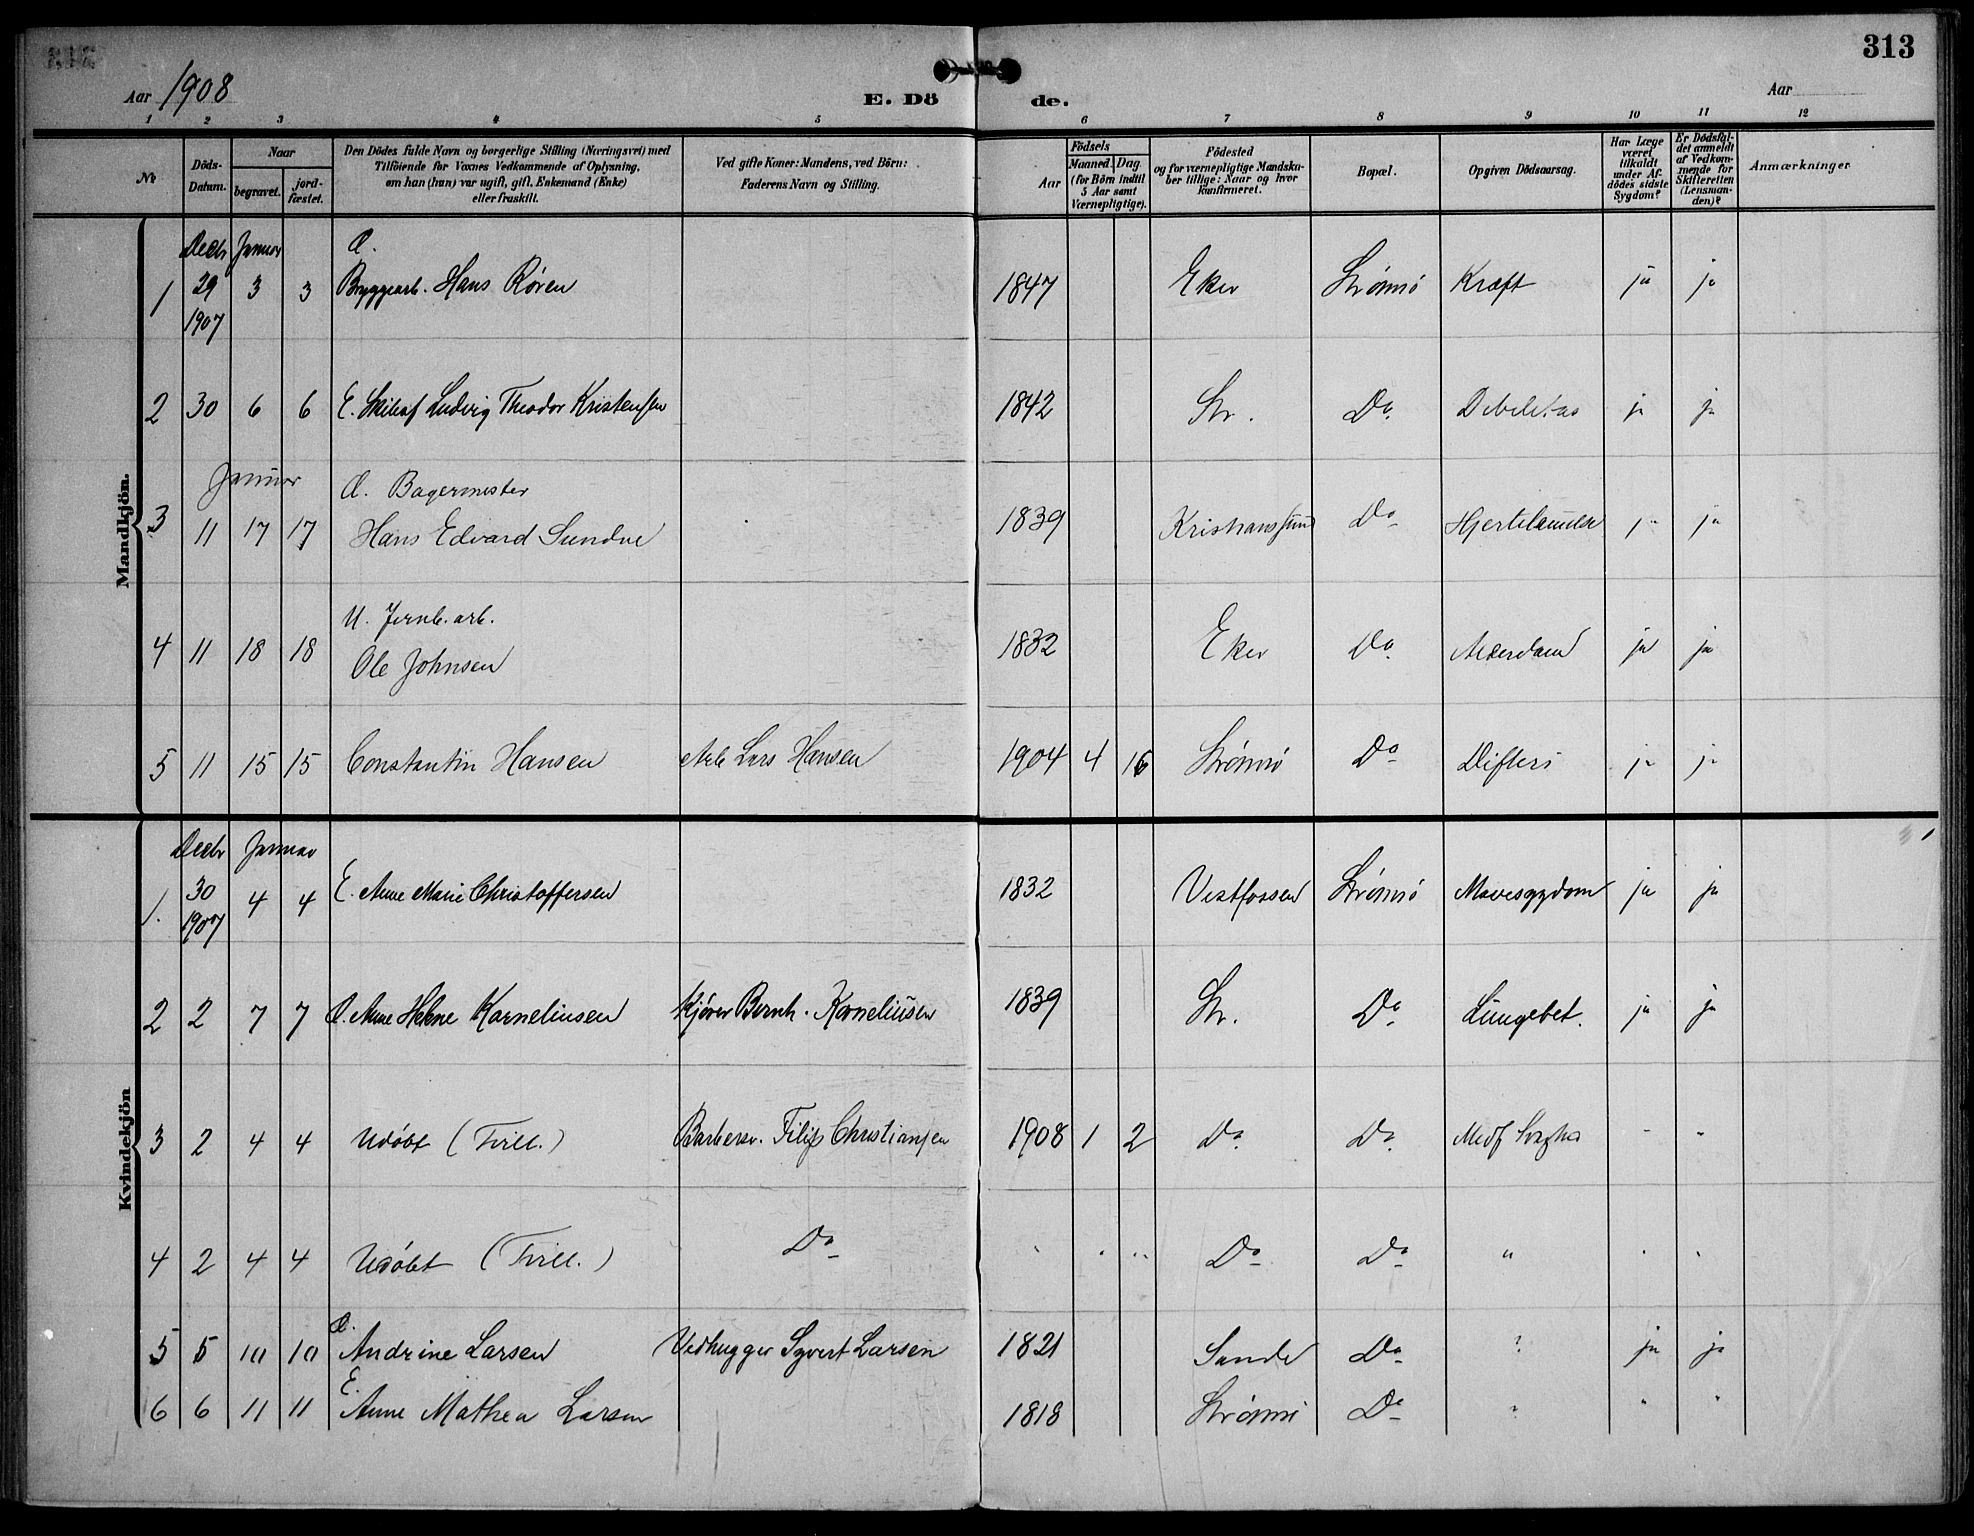 313
Aar 1908
E. Dö de.
Aar
1 2 3 4 5 6 7 8 9 10 11 12
No
Döds-Datum.
Naar
begravet.
jord-fæstet.
Den Dödes fulde Navn og borgerlige Stilling (Næringsvei) med
Tilföiende for Voxnes Vedkommende af Oplysning,
om han (hun) var ugift, gift, Enkemand (Enke)
eller fraskilt.
Ved gifte Koner: Mandens, ved Börn:
Faderens Navn og Stilling.
Födsels
Aar
Maaned. Dag.
(for Börn indtil
5 Aar samt
Værnepligtige).
Födested
og for værnepligtige Mandska-
ber tillige: Naar og hvor
konfirmeret.
Bopæl.
Opgiven Dödsaarsag.
Har Læge
været
tilkaldt
under Af-
dödes sidste
Sygdom?
Er Dödsfal-
det anmeldt
af Vedkom-
mende for
Skifteretten
(Lensman-
den)?
Anmærkninger.
Mandkjön.
Decbr Januar G.
1 29 1907 3 3 Bryggearb. Hans Røren 1847 Eker Strømsø Kræft ja ja
2 30 6 6 E. Ludvig Theodor Kristensen 1842 Str. Do Debilitas ja ja
Januar G. Bagermester
3 11 17 17 Hans Edvard Sundve 1839 Kristianssund Do Hjertelammelse ja ja
U. Jernb. arb.
4 11 18 18 Ole Johnsen 1832 Eker Do Alderdom ja ja
5 11 15 15 Constantin Hansen Arb. Lars Hansen 1904 4 16 Strømsø Do Difteri ja ja
Kvindekjön
Decbr Januar
1. 30 1907 4 4 E. Anne Marie Christoffersen 1832 Vestfossen Strømsø Mavesygdom ja ja
2 2 7 7 G. Anne Helene Korneliusen Kjører Bernh. Korneliusen 1839 Str. Do Lungebet. ja ja
3 2 4 4 Udøbt (Tvill.) Barbersv. Filip Christiansen 1908 1 2 Do Do Medf. Svaghed " "
4 2 4 4 Udøbt (Tvill.) Do " " " Do Do " " "
G.
5 5 10 10 Andrine Larsen Vedhugger Syvert Larsen 1821 Sande Do ? ja ja
E.
6 6 11 11 Anne Mathea Larsen 1818 Strømsø Do ? " "